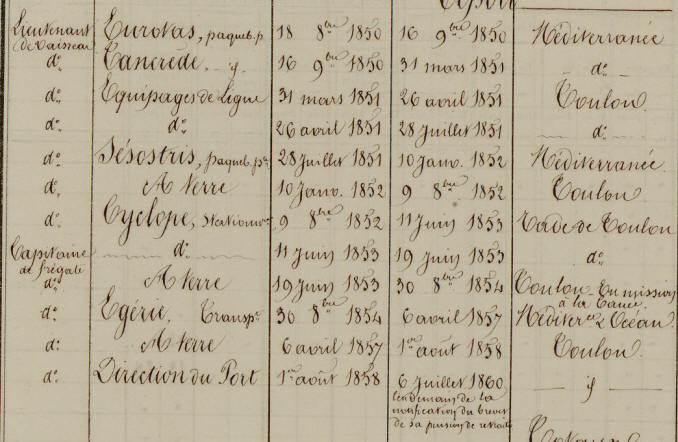 Lieutenant de Vaisseau Eurotas, paqueb. p. 18 8bre 1850 16 9bre 1850 Méditerranée
do. Tancrède. y. 16 9bre 1850 31 mars 1851 do.
do. Equipages de Ligne 31 mars 1851 26 avril 1851 Toulon.
do. do. 26 avril 1851 28 Juillet 1851 do.
do. Sésostris, paqueb. 28 Juillet 1851 10 Janv. 1852 Méditerranée.
do. A terre 10 Janv. 1852 9 8bre 1852 Toulon
do. Cyclope, stationnre 9 8bre 1852 11 Juin 1853 Rade de Toulon
Capitaine de frégate do. 11 Juin 1853 19 Juin 1853 do.
do. A terre 19 Juin 1853 30 8bre 1854 Toulon En mission à la
do. Egérie, Transpt 30 8bre 1854 6 avril 1857 Méditerée & Océan.
do. A terre 6 avril 1857 1er août 1858 Toulon.
do. Direction du Port 1er août 1858 6 Juillet 1860 y
lendemain de la
notification du brevet
de sa pension de retraite